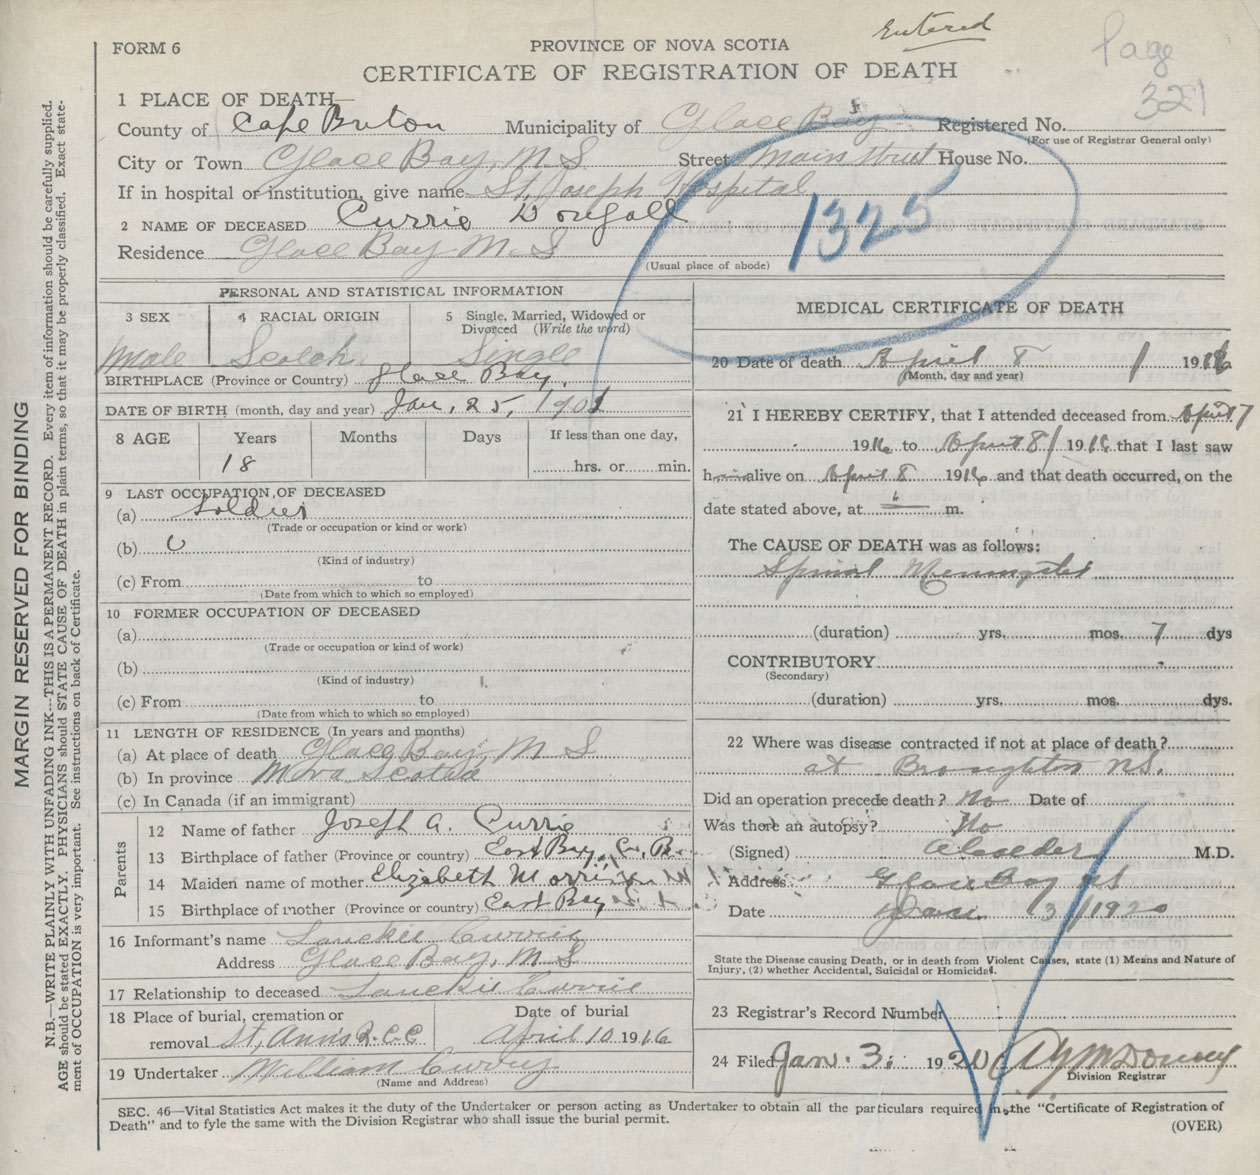 Entered
Page
321
FORM 6
PROVINCE OF NOVA SCOTIA
CERTIFICATE OF REGISTRATION OF DEATH
1 PLACE OF DEATH
County of Cape Breton Municipality of Glace Bay Registered No.
(For use of Registrar General only)
City or Town Glace Bay, N S Street Main Street House No.
If in hospital or institution, give name St, Joseph Hospital
1325
2 NAME OF DECEASED Currie Dougall
Residence Glace Bay N. S
(Usual place of abode)
PERSONAL AND STATISTICAL INFORMATION
3 SEX 4 RACIAL ORIGIN 5 Single, Married, Widowed or Divorced (Write the word)
Male Scotch Single
BIRTHPLACE (Province or Country) Glace Bay,
DATE OF BIRTH (month, day and year) Jan, 25, 1901
8 AGE Years Months Days If less than one day,
18 hrs. or min.
9 LAST OCCUPATION OF DECEASED
(a) Soldier
(Trade or occupation or kind or work)
(b)
(Kind of industry)
(c) From to
(Date from which to which so employed)
10 FORMER OCCUPATION OF DECEASED
(a)
(Trade or occupation or kind of work)
(b)
(Kind of industry)
(c) From to
(Date from which to which so employed)
11 LENGTH OF RESIDENCE (In years and months)
(a) At place of death Glace Bay, N S
(b) In province Nova Scotia
(c) In Canada (if an immigrant)
Parents
12 Name of father Joseph A. Currie
13 Birthplace of father (Province or country) East Bay, C. B.
14 Maiden name of mother Elizabeth Morrison
15 Birthplace of mother (Province or country) East Bay
16 Informant's name Currie
Address Glace Bay, N S
17 Relationship to deceased Currie
18 Place of burial, cremation or removal St, Ann's R.C.C Date of burial April 10 1916
19 Undertaker William Curry
(Name and Address)
MEDICAL CERTIFICATE OF DEATH
20 Date of death April 8 1916
(Month, day and year)
21 I HEREBY CERTIFY, that I attended deceased from April 7
1916 to April 8 1916 that I last saw
him alive on April 8 1916 and that death occurred, on the
date stated above, at 6 m.
The CAUSE OF DEATH was as follows:
Spinal Meningitis
(duration) yrs. mos. 7 dys
CONTRIBUTORY
(Secondary)
(duration) yrs. mos. dys.
22 Where was disease contracted if not at place of death?
at Broughton N.S.
Did an operation precede death? No Date of
Was there an autopsy? No
(Signed) M.D.
Address Glace Bay N S
Date Jan 3 1920
State the Disease causing Death, or in death from Violent Causes, state (1) Means and Nature of
Injury, (2) whether Accidental, Suicidal or Homicidal.
23 Registrar's Record Number
24 Filed Jan. 3. 1920
Division Registrar
SEC. 46—Vital Statistics Act makes it the duty of the Undertaker or person acting as Undertaker to obtain all the particulars required in the "Certificate of Registration of
Death" and to fyle the same with the Division Registrar who shall issue the burial permit.
(OVER)
MARGIN RESERVED FOR BINDING
N.B.—WRITE PLAINLY WITH UNFADING INK---THIS IS A PERMANENT RECORD. Every item of information should be carefully supplied.
AGE should be stated EXACTLY. PHYSICIANS should STATE CAUSE OF DEATH in plain terms, so that it may be properly classified. Exact state-
ment of OCCUPATION is very important. See instructions on back of Certificate.